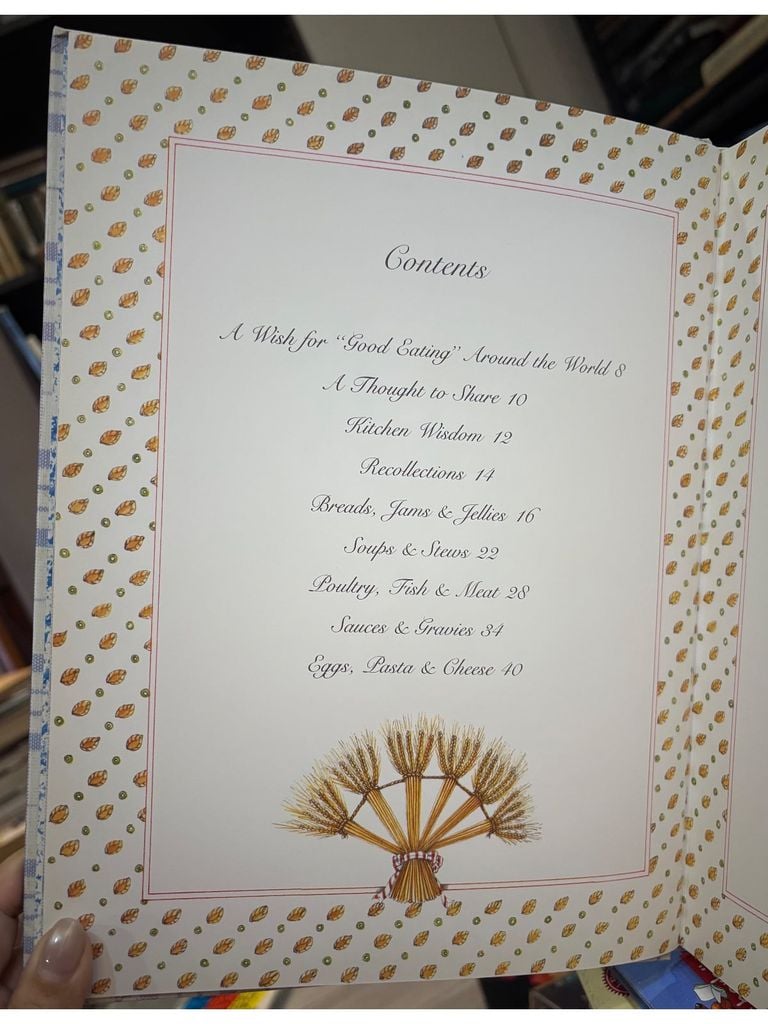 Contents
A Wish for “Good Eating” Around the World 8
A Thought to Share 10
Kitchen Wisdom 12
Recollections 14
Breads, Jams & Jellies 16
Soups & Stews 22
Poultry, Fish & Meat 28
Sauces & Gravies 34
Eggs, Pasta & Cheese 40